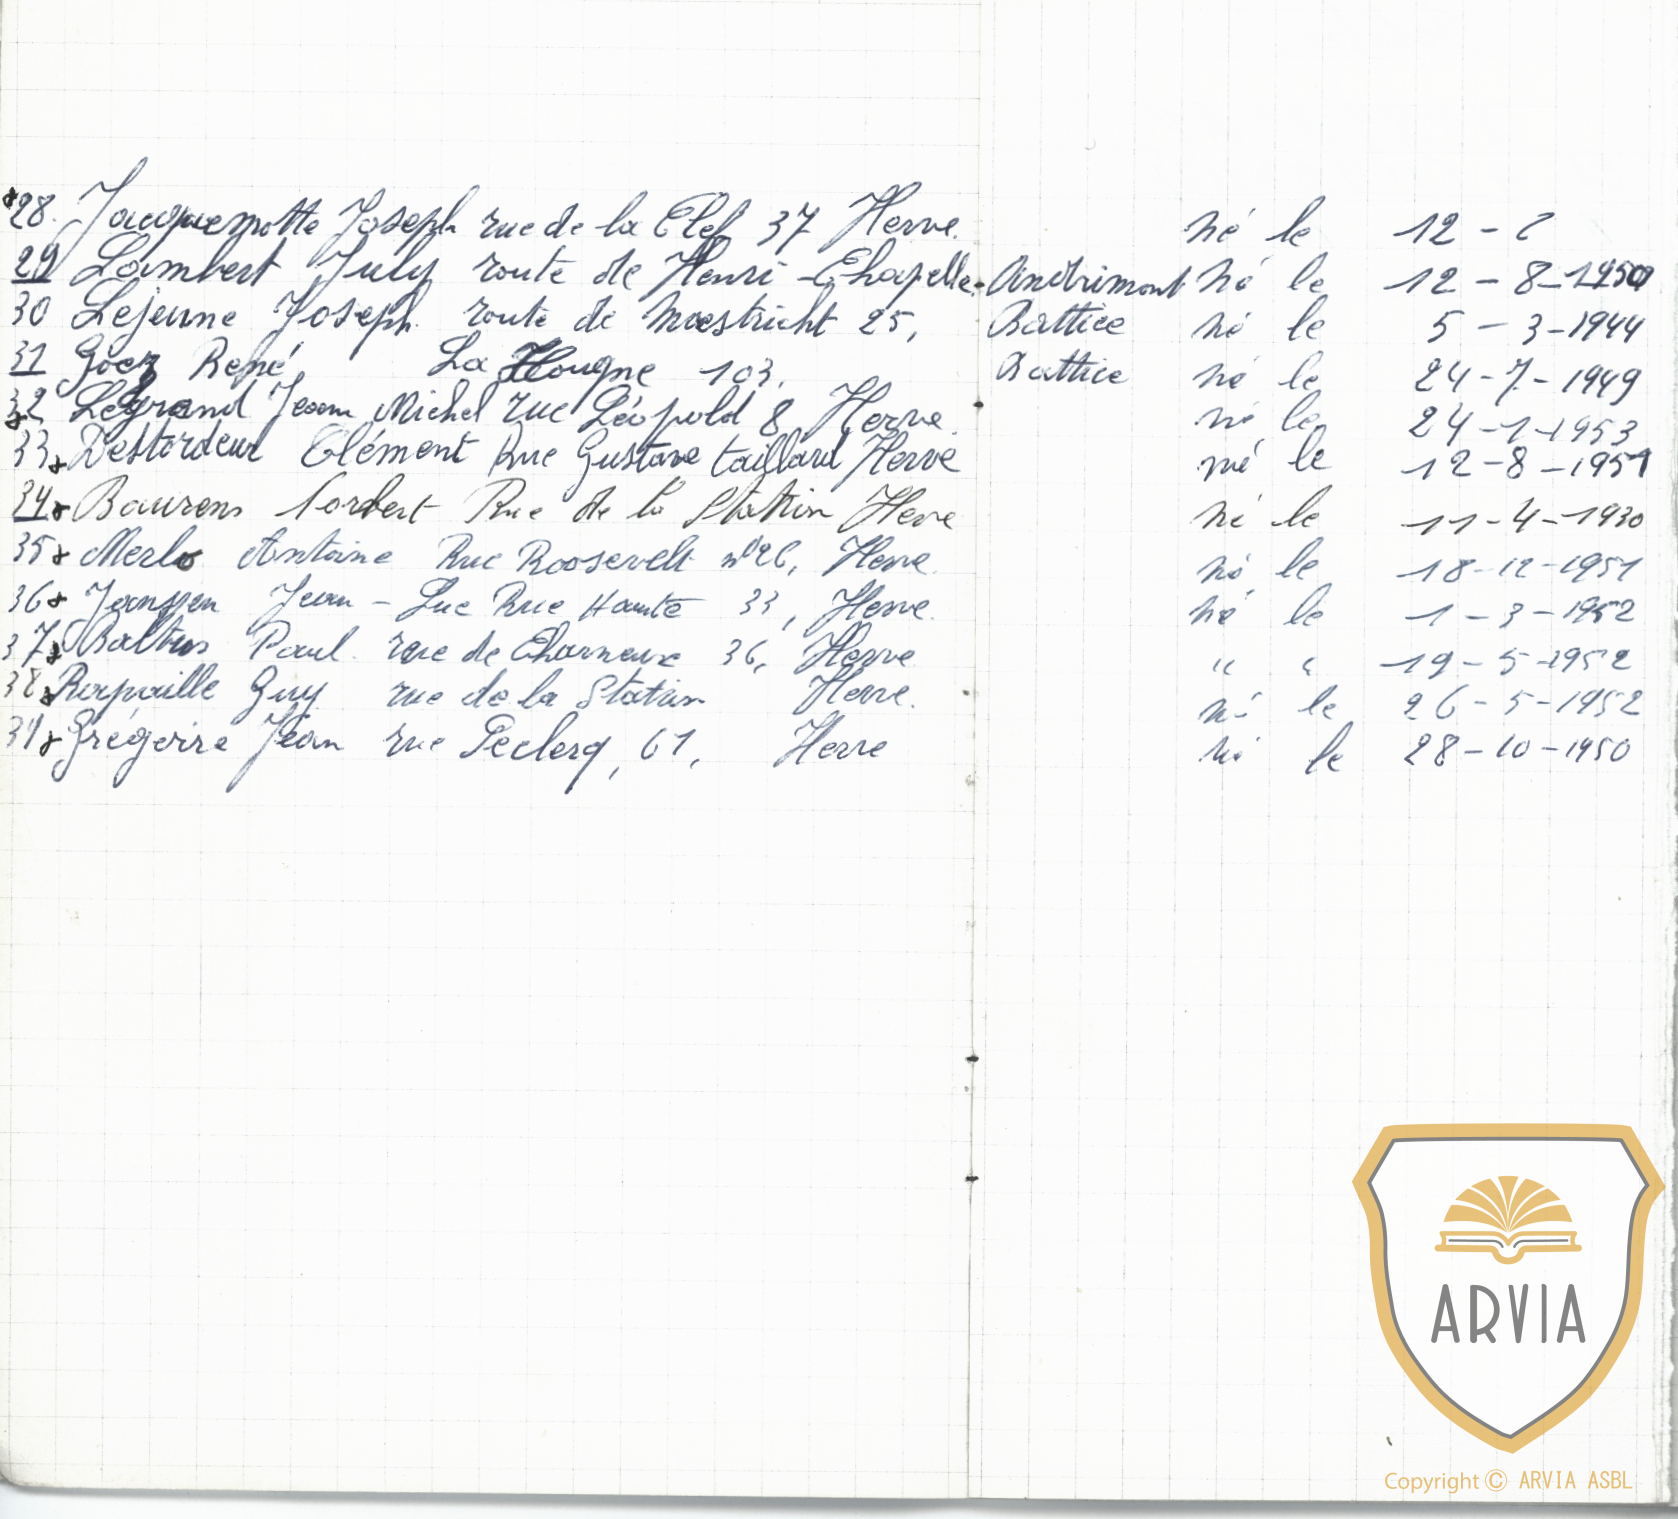 28. Jacquemotte Joseph rue de la Clef 37 Herve. né le 12 -
29 Lambert July route de Henri-Chapelle. Andrimont né le 12 - 8 - 1950
30 Lejeune Joseph route de Maestricht 25, Battice né le 5 - 3 - 1944
31 Goez René La Hougne 103. Battice né le 24 - 7 - 1949
32 Legrand Jean Michel rue Léopold 8 Herve. né le 24 - 1 - 1953
33 Destordeur Clément Rue Gustave taillard Herve né le 12 - 8 - 1951
34 Baurens Norbert Rue de la Station Herve né le 11 - 4 - 1930
35 Merlo Antoine Rue Roosevelt n° 26, Herve. né le 18 - 12 - 1951
36 Janssen Jean - Luc Rue Haute 33, Herve. né le 1 - 3 - 1952
37 Baltus Paul. rue de Charneux 36, Herve " " 19 - 5 - 1952
38 Rapaille Guy rue de la Station Herve. né le 26 - 5 - 1952
39 Grégoire Jean rue Leclerq, 61, Herve né le 28 - 10 - 1950
ARVIA
Copyright © ARVIA ASBL